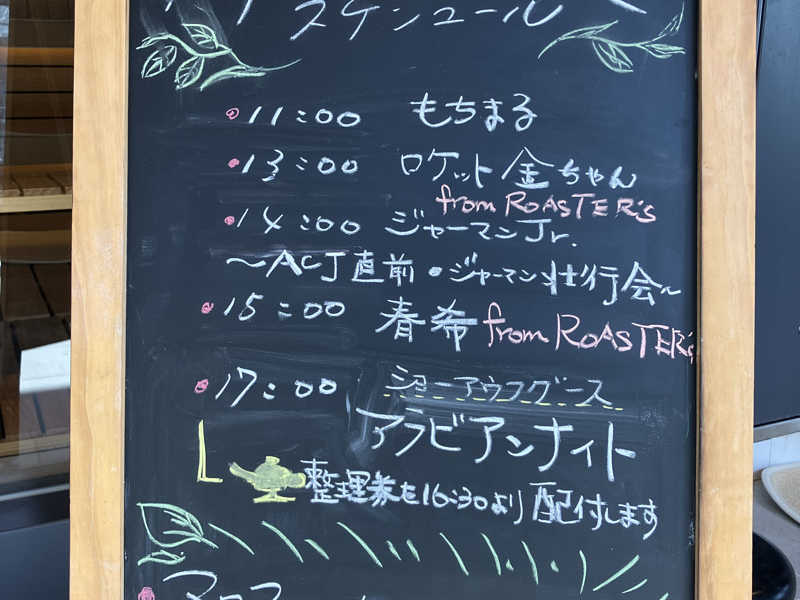 スケジュール
11:00 もちまる
13:00 ロケット金ちゃん
from ROASTER's
14:00 ジャーマンJr.
～ACJ直前・ジャーマン壮行会～
15:00 春希 from ROASTER's
17:00 ショーアウフグース
アラビアンナイト
整理券を16:30より配付します